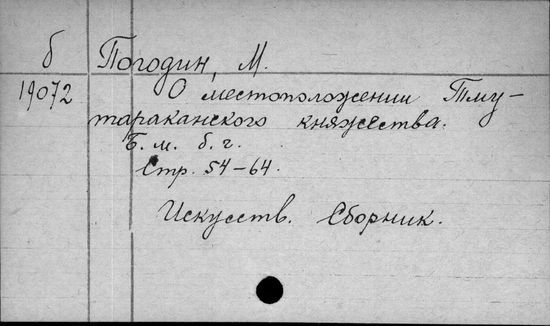 б Погодин, М.
19072 О местоположении Тму-
тараканского княжества.
Б. м. б. г.
Стр. 54-64.
Искусств. Сборник.